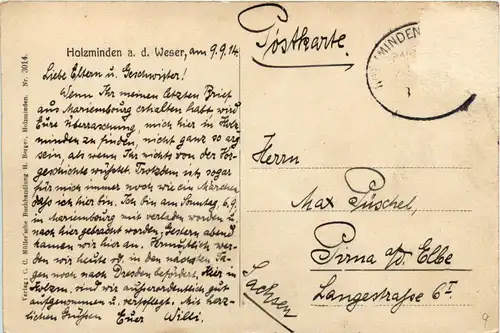 Holzminden a. d. Weser, am 9.9.14.
Liebe Eltern u. Geschwister!
Wenn Ihr meinen letzten Brief
aus Marienburg erhalten habt wird
Eure Überraschung, mich hier in Holz
minden zu finden, nicht ganz so arg
sein, als wenn Ihr nichts von der Vor
geschichte wüsstet. Trotzdem ist sogar
für mich immer noch wie ein Märchen
dass ich hier bin. Ich bin am Sonntag, 6.9.
in Marienburg mit verladen worden u.
nach hier gebracht worden, Gestern abend
kamen wir hier an. wer
den wir heute od. in den nächsten Ta
gen noch nach Dresden befördert. Hier in
Holzm. sind wir außerordentlich gut
aufgenommen u. verpflegt. Mit herz
lichen Grüßen Euer Willi.
Verlag: C. C. Müller'sche Buchhandlung H. Berger, Holzminden. Nr. 3014.
Postkarte.
HOLZMINDEN
Herrn
Max Püschel,
Pirna a/d. Elbe
Langestraße 6 I.
Sachsen
9